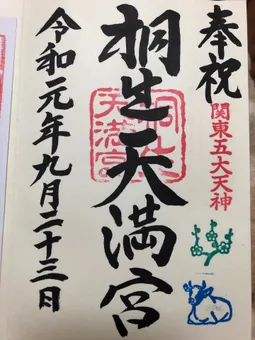 奉祝
関東五大天神
桐生天満宮
桐生天満宮
令和元年九月二十三日